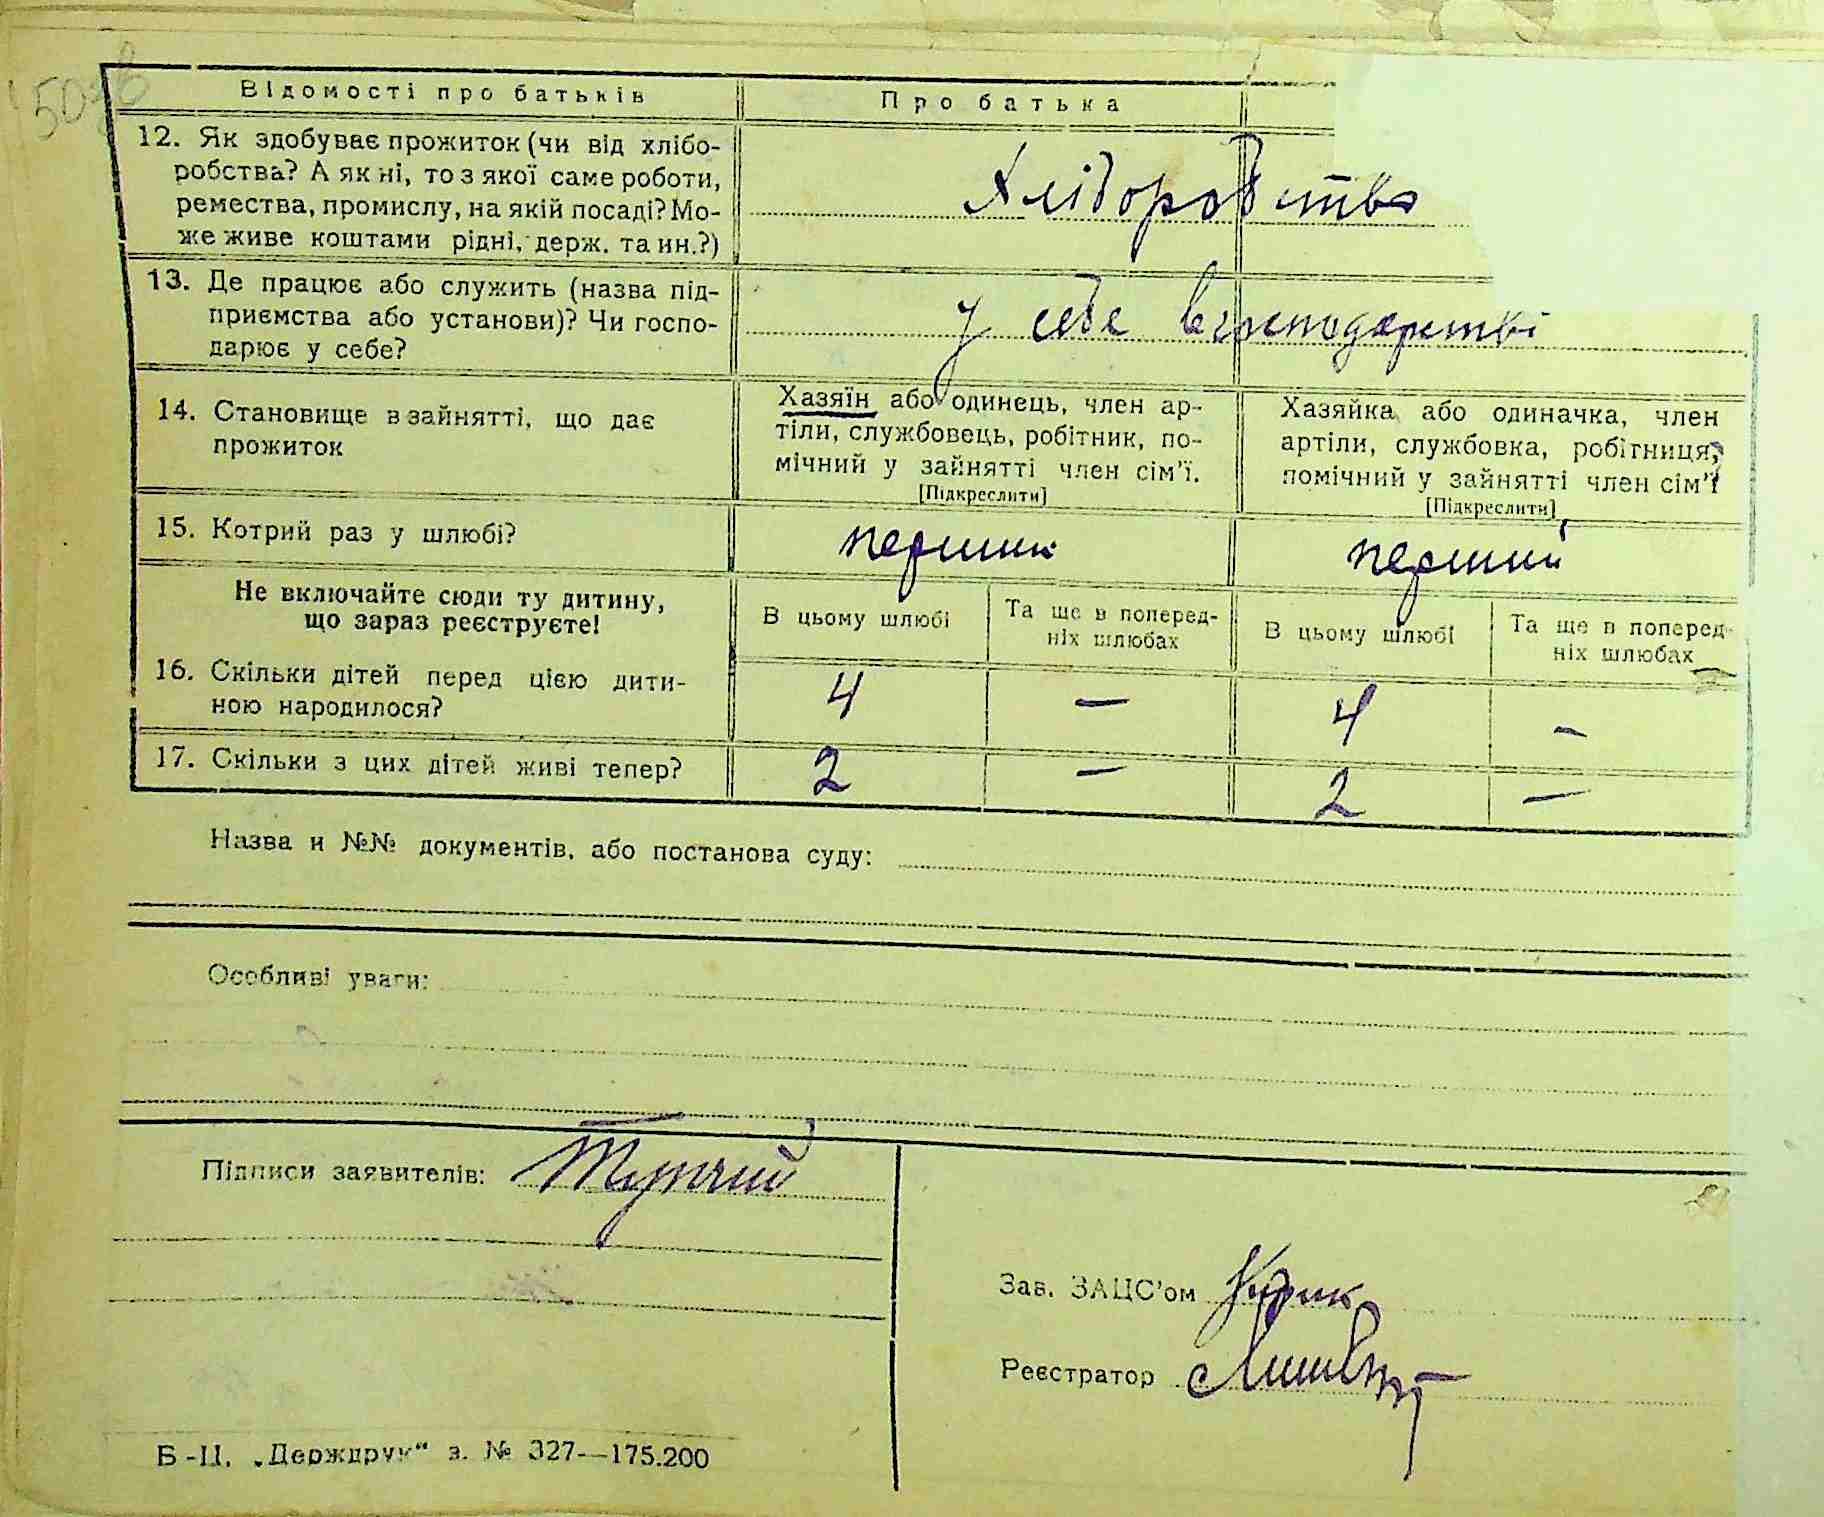 50зв
Відомості про батьків
Про батька
12. Як здобуває прожиток (чи від хлібо-
робства? А як ні, то з якої саме роботи,
ремества, промислу, на якій посаді? Мо-
же живе коштами рідні, держ. та ин.?)
Хліборобство
13. Де працює або служить (назва під-
приємства або установи)? Чи госпо-
дарює у себе?
у себе в господарстві
14. Становище в зайнятті, що дає
прожиток
Хазяїн або одинець, член ар-
тіли, службовець, робітник, по-
мічний у зайнятті член сім'ї.
[Підкреслити]
Хазяйка або одиначка, член
артіли, службовка, робітниця,
помічний у зайнятті член сім'ї
[Підкреслити]
15. Котрий раз у шлюбі?
перший
перший
Не включайте сюди ту дитину,
що зараз реєструєте!
В цьому шлюбі
Та ще в поперед-
ніх шлюбах
В цьому шлюбі
Та ще в поперед-
ніх шлюбах
16. Скільки дітей перед цією дити-
ною народилося?
4 — 4 —
17. Скільки з цих дітей живі тепер?
2 — 2 —
Назва и №№ документів, або постанова суду:
Особливі уваги:
Підписи заявителів:
Зав. ЗАЦС'ом
Реєстратор
Б-Ц. „Держдрук“ з. № 327—175.200